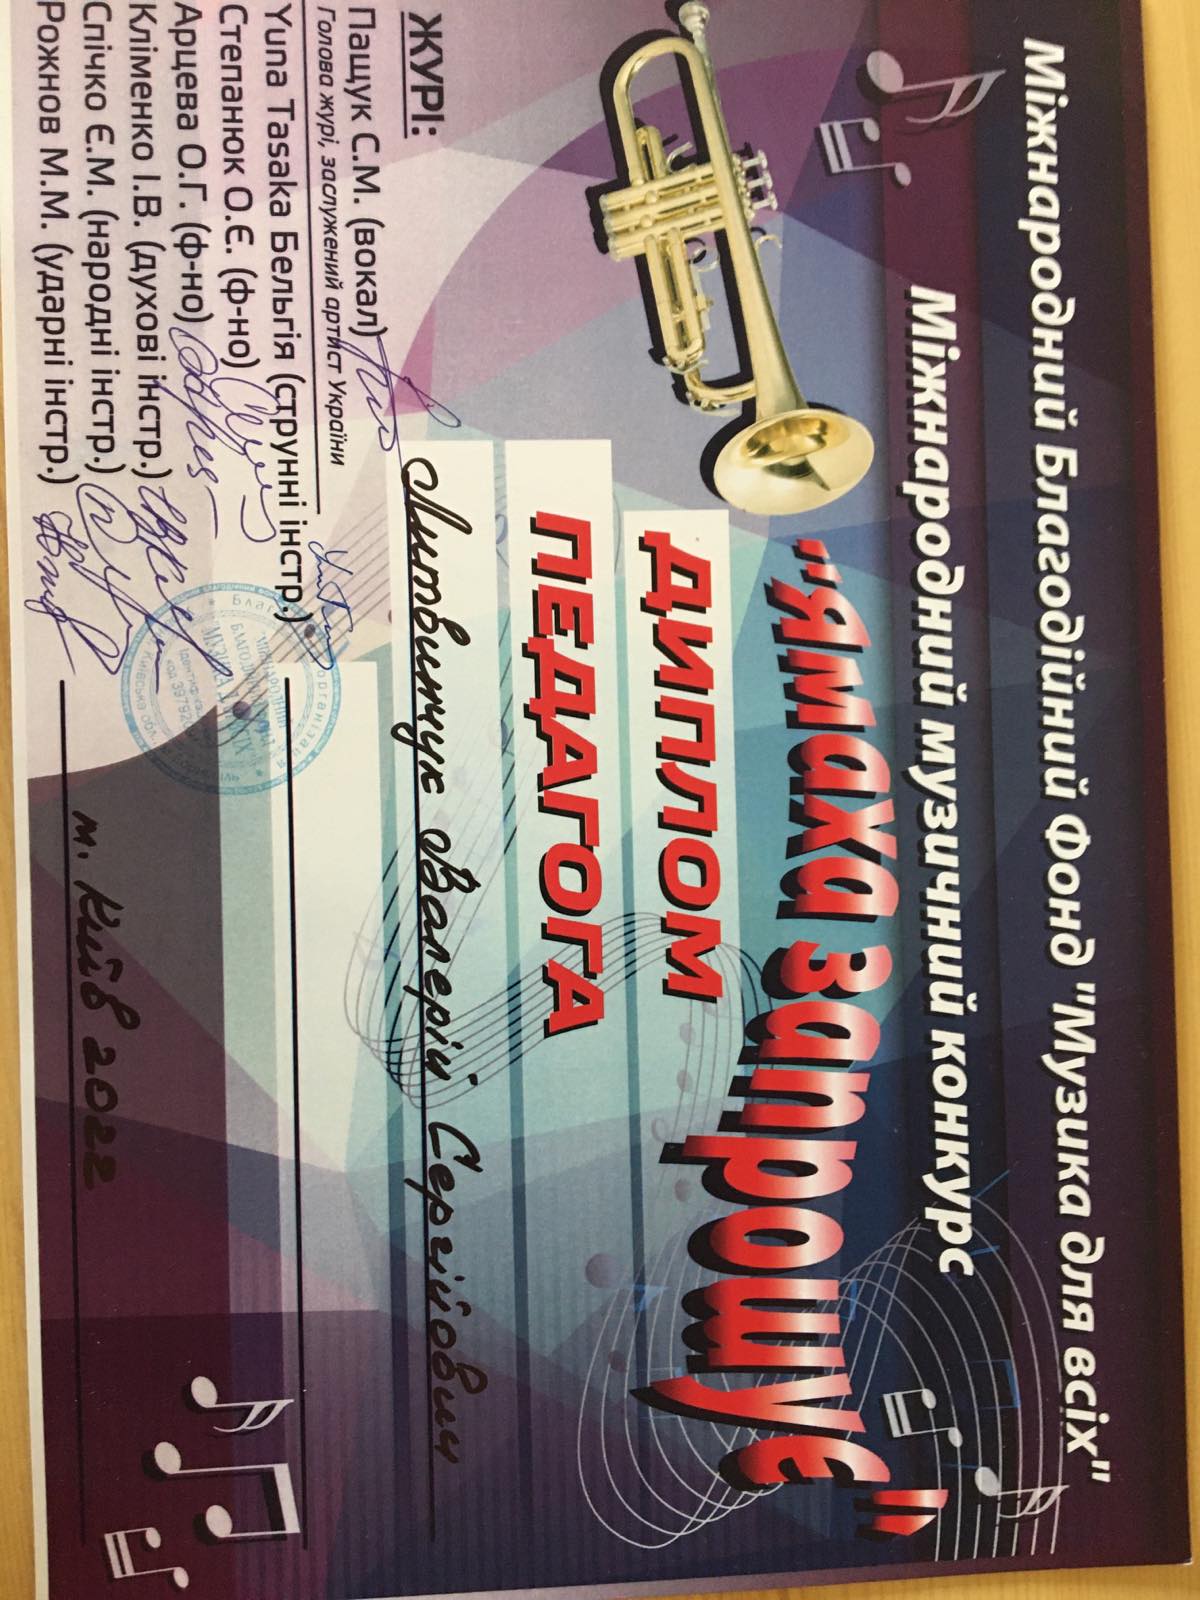 Міжнародний Благодійний Фонд "Музика для всіх"
Міжнародний музичний конкурс
"Ямаха запрошує"
ДИПЛОМ
ПЕДАГОГА
Литвинчук Валерій Сергійович
ЖУРІ:
Пащук С.М. (вокал)
Голова журі, заслужений артист України
Yuna Tasaka Бельгія (струнні інстр.)
Степанюк О.Є. (ф-но)
Арцева О.Г. (ф-но)
Кліменко І.В. (духові інстр.)
Спічко Є.М. (народні інстр.)
Рожнов М.М. (ударні інстр.)
організація
МІЖНАРОДНИЙ
БЛАГОДІЙНИЙ ФОНД
"МУЗИКА ДЛЯ ВСІХ"
код
Київська обл.
м. Київ 2022